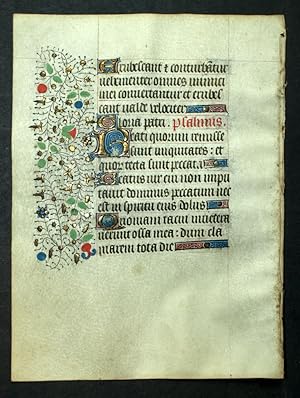 Erubescant et conturbentur
vehementer omnes inimici
mei convertantur et erubes
cant valde velociter
Gloria patri. Psalmus.
Beati quorum remisse
sunt iniquitates: et
quorum tecta sunt peccata.
Beatus vir cui non impu
tavit dominus peccatum nec
est in spiritu eius dolus
Quoniam tacui invetera
verunt ossa mea: dum cla
marem tota die